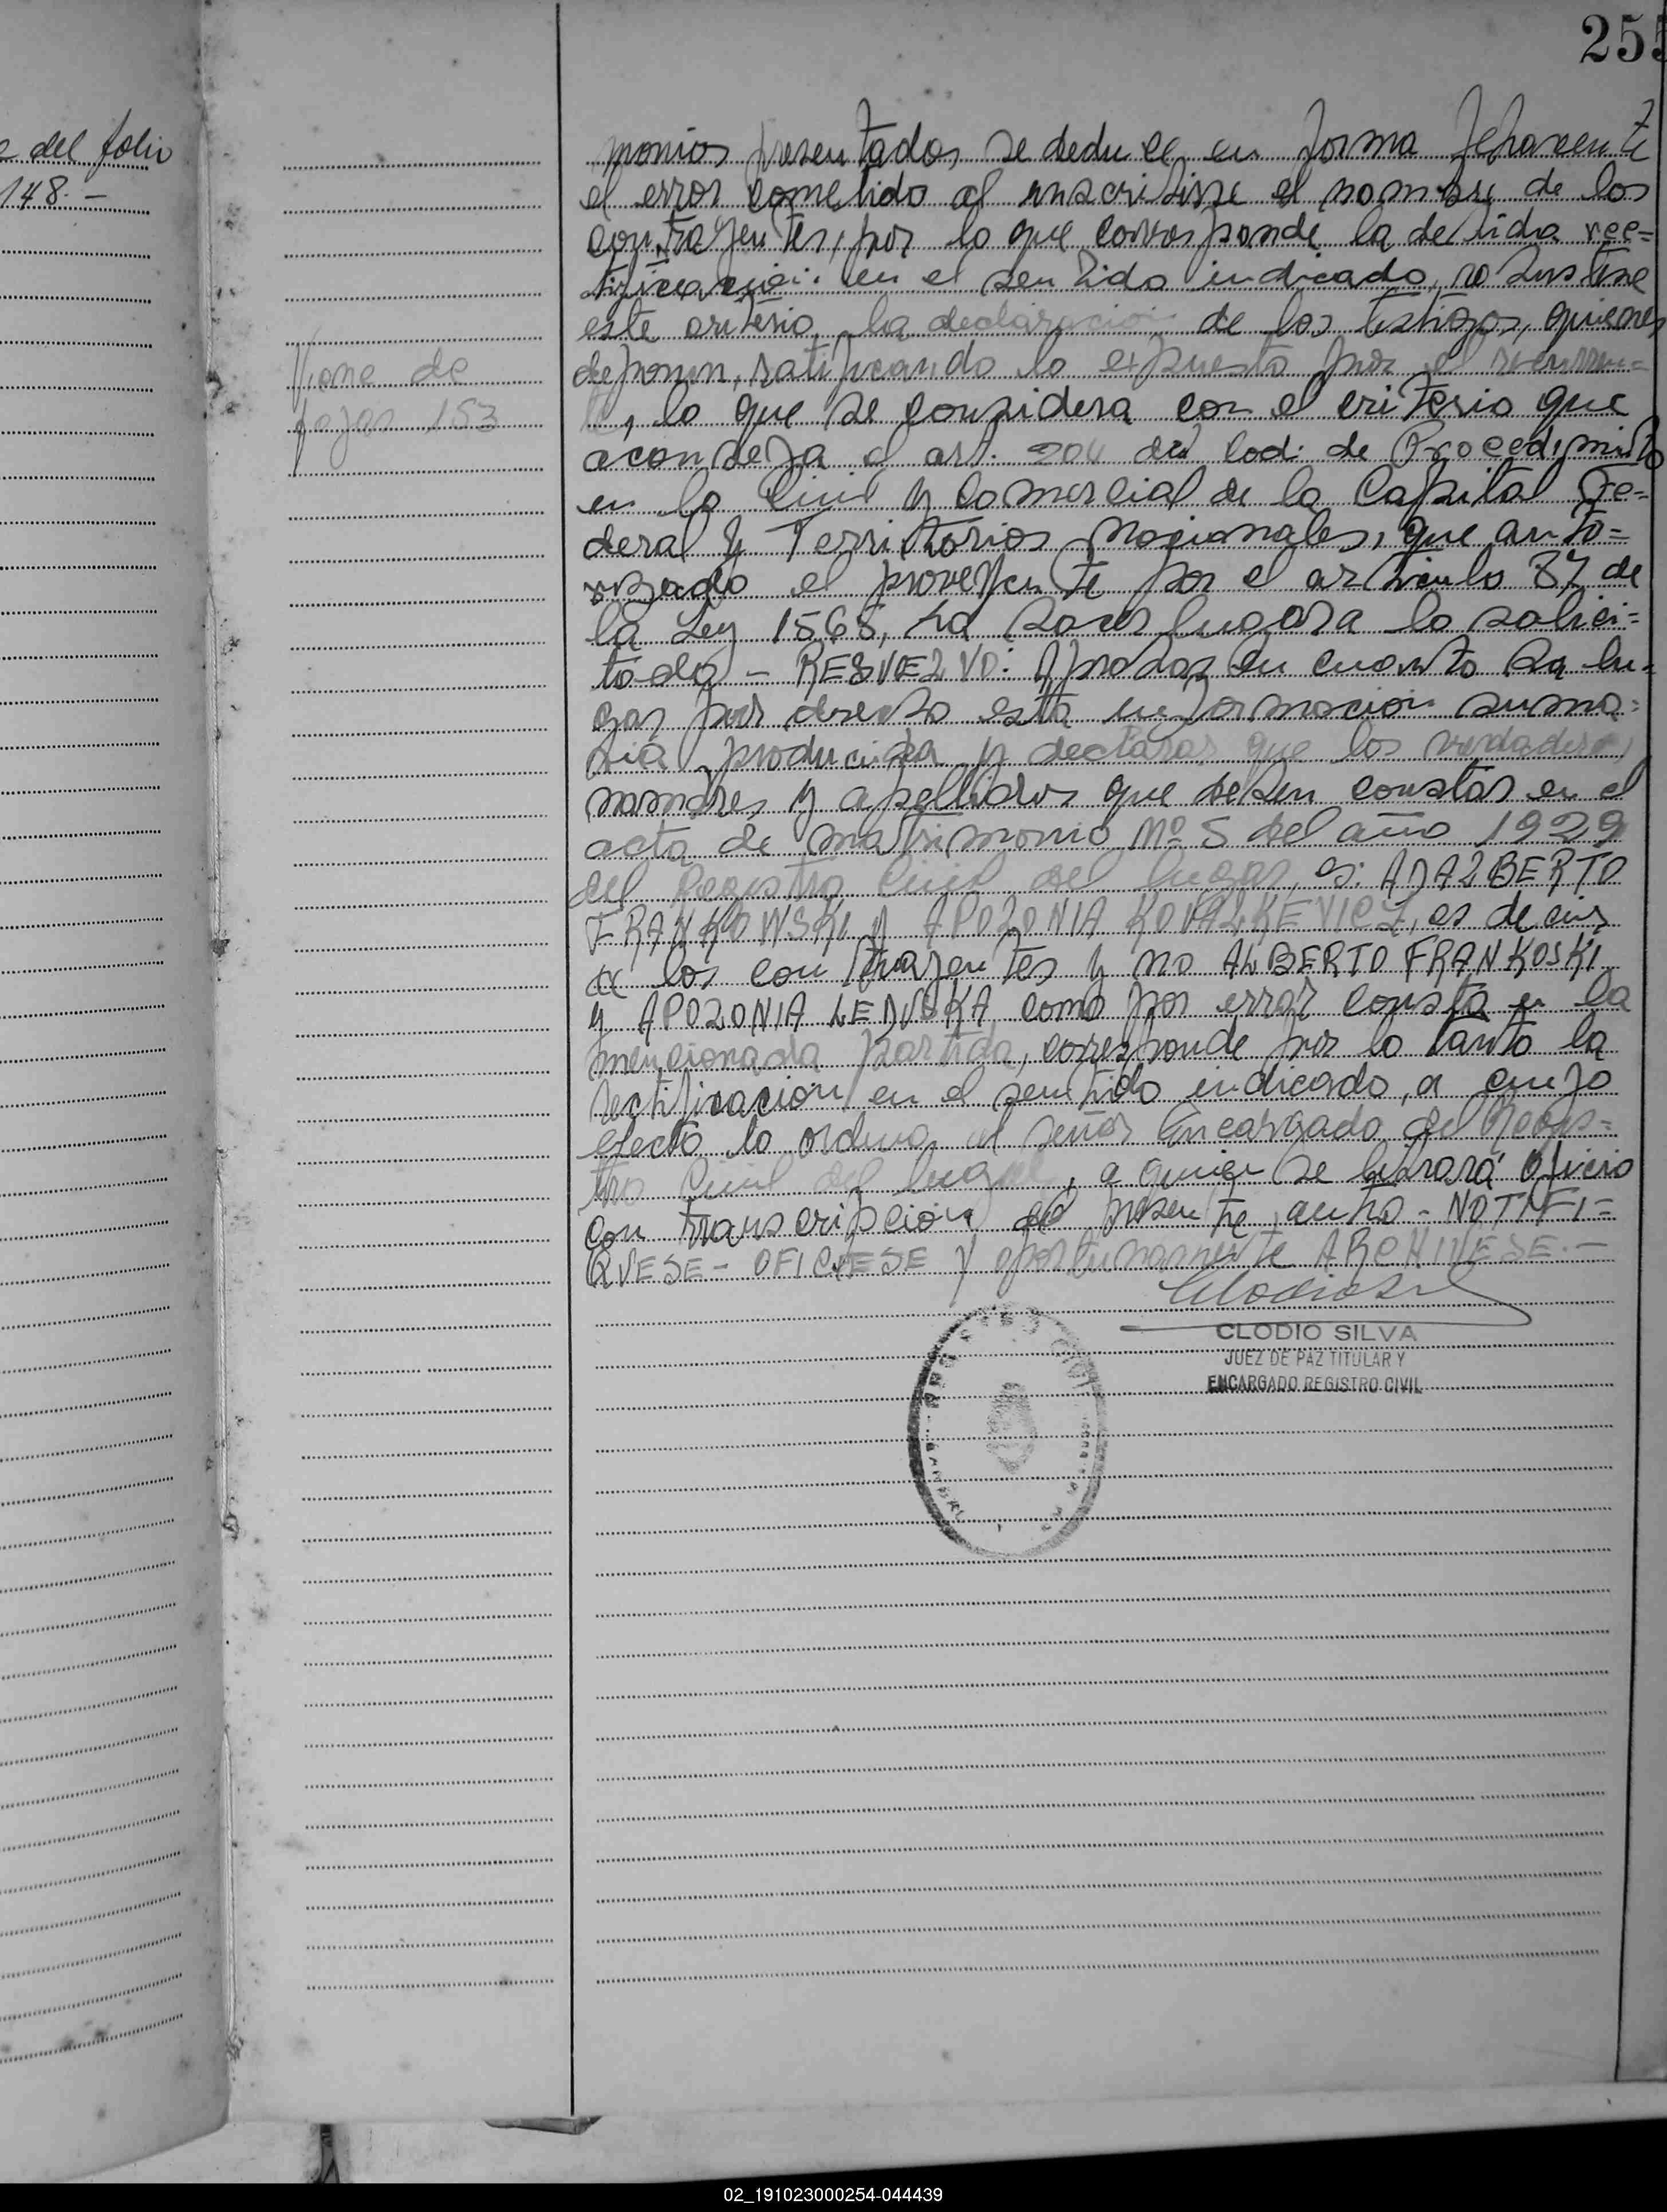 255
e del folio
148.-
Viene de
fojas 153
monios presentados, se deduce en forma fehaciente
el error cometido al inscribirse el nombre de los
contrayentes, por lo que corresponde la debida rec=
tificación en el sentido indicado, robustece
este criterio, la declaración de los testigos, quienes
deponen, ratificando lo expuesto por el recurren=
te, lo que se considera con el criterio que
aconseja el art. 204 del Cod: de Procedimito
en lo Civil y Comercial de la Capital Fe=
deral y Territorios Nacionales, que auto=
rizado el proveyente por el artículo 87 de
la Ley 1565, ha hacer lugar a lo solici=
tado - RESUELVO: Aprobar en cuanto ha lu=
gar por derecho esta información suma=
ria producida y declarar que los verdaderos
nombres y apellidos que deben constar en el
acta de matrimonio Nº 5 del año 1929
del Registro Civil del lugar, es: ADALBERTO
FRANKOWSKI y APOLONIA KOVALKEVICZ, es decir
a los contrayentes y no ALBERTO FRANKOSKI
y APOLONIA LEDUSKA, como por error consta en la
mencionada partida, corresponde por lo tanto la
rectificación en el sentido indicado, a cuyo
efecto lo ordena al señor Encargado del Regis=
tro Civil del lugar, a quien se librará oficio
con transcripción del presente auto - NOTIFI=
QUESE - OFICIESE y oportunamente ARCHIVESE.-
CLODIO SILVA
JUEZ DE PAZ TITULAR Y
ENCARGADO REGISTRO CIVIL
02_191023000254-044439